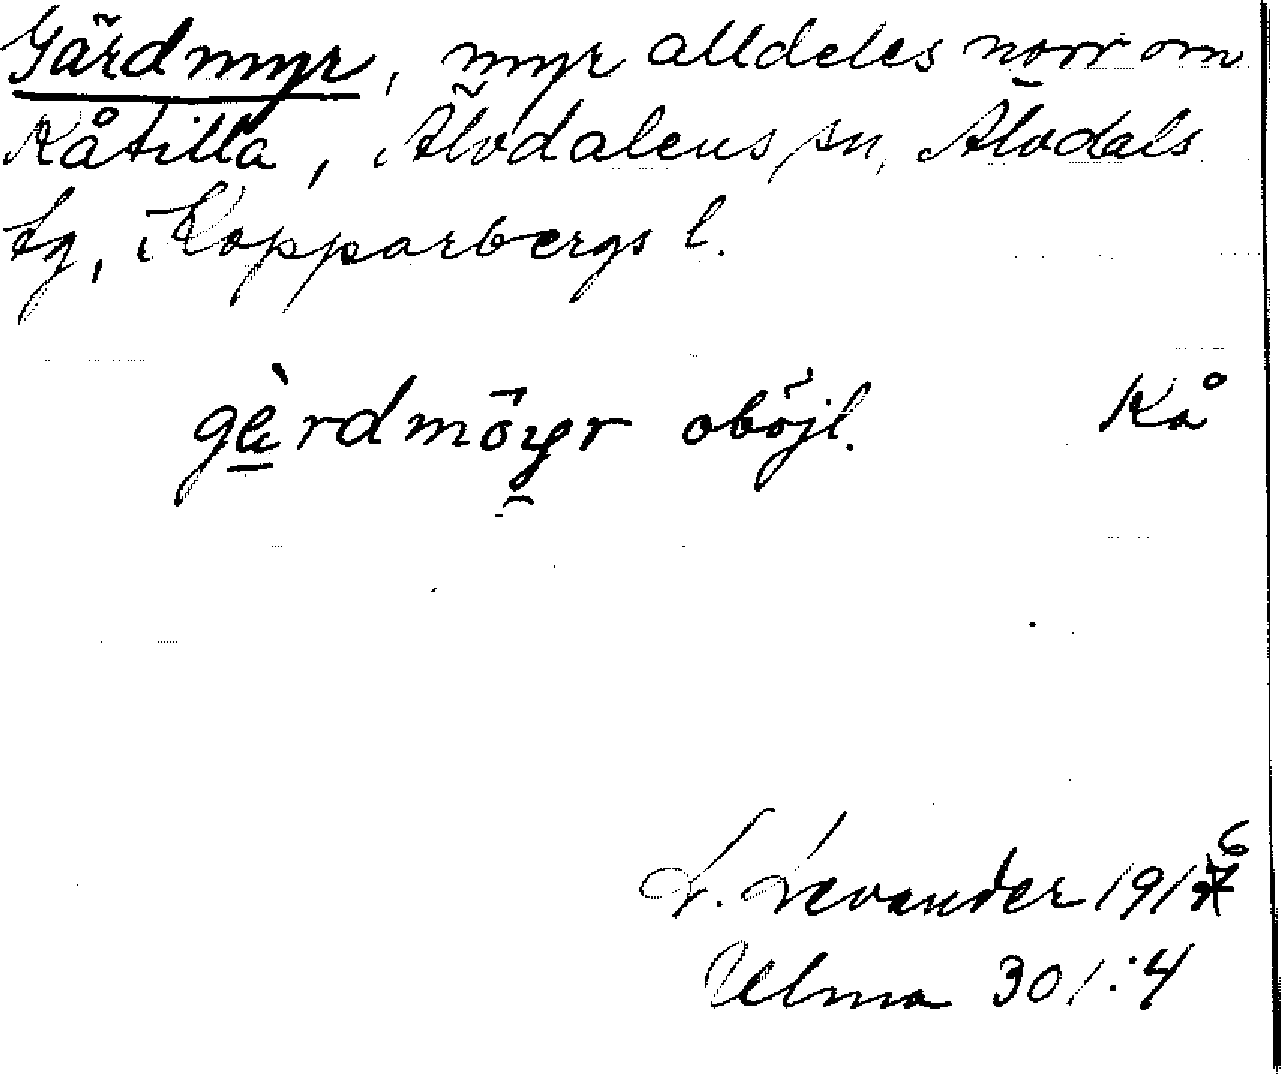 Gärdmyr, myr alldeles norr om
Kåtilla, Älvdalens sn, Älvdals
tg, Kopparbergs l.
gèrdmöyr oböjl. Kå
L. Levander 1916
Ulma 301:4